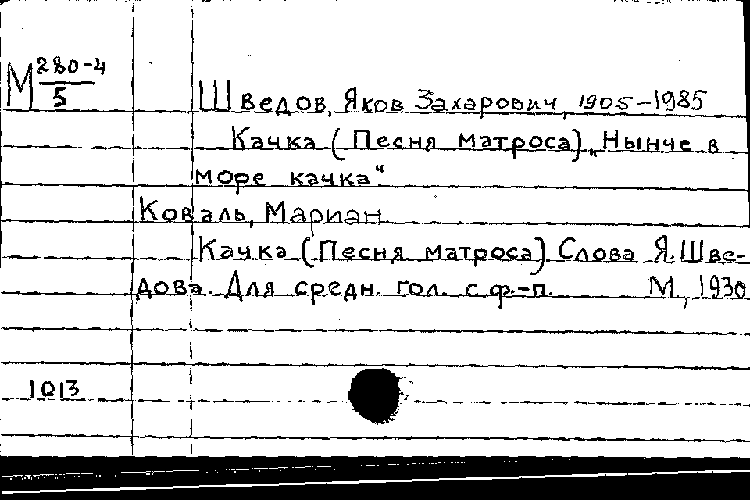 М 280-4
5
Шведов, Яков Захарович, 1905-1985
Качка (Песня матроса) „Нынче в
море качка“
Коваль, Мариан
Качка (Песня матроса). Слова Я. Шве-
дова. Для средн. гол. с ф.-п. М., 1930
1013